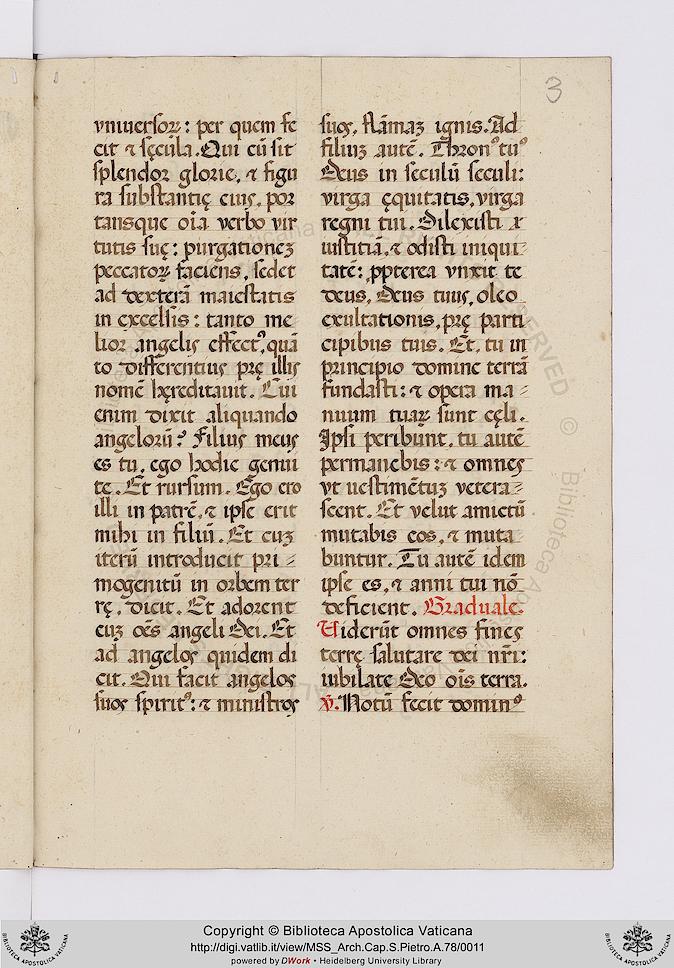 3
vniuersoꝝ: per quem fe
cit ⁊ sęcula. Qui cū sit
splendor glorie, ⁊ figu
ra substantię eius, por
tansque oīa verbo vir
tutis suę: purgationeʒ
peccatoꝝ faciens, sedet
ad dexterā maiestatis
in excelsis: tanto me
lior angelis effectꝰ, quā
to differentius prę illis
nomē hęreditauit. Cui
enim dixit aliquando
angelorū? Filius meus
es tu, ego hodie genui
te. Et rursum. Ego ero
illi in patrē, ⁊ ipse erit
mihi in filiū. Et cuʒ
iterū introducit pri⸗
mogenitū in orbem ter
rę, dicit. Et adorent
euʒ oēs angeli Dei. Et
ad angelos quidem di
cit. Qui facit angelos
suos spiritꝰ: ⁊ ministros
suos, flāmaʒ ignis. Ad
filiuʒ autē. Thronꝰ tuꝰ
Deus in seculū seculi:
virga ęquitatis, virga
regni tui. Dilexisti
iustitiā, ⁊ odisti iniqui⸗
tatē: ꝓpterea vnxit te
deus, Deus tuus, oleo
exultationis, prę parti
cipibus tuis. Et, tu in
principio domine terrā
fundasti: ⁊ opera ma⸗
nuum tuaꝝ sunt cęli.
Ipsi peribunt, tu autē
permanebis: ⁊ omnes
vt uestimētuʒ vetera⸗
scent. Et velut amictū
mutabis eos, ⁊ muta
buntur. Tu autē idem
ipse es, ⁊ anni tui nō
deficient. Graduale.
Uiderūt omnes fines
terrę salutare dei nr̄i:
iubilate Deo oīs terra.
℣. Notū fecit dominꝰ
Copyright © Biblioteca Apostolica Vaticana
http://digi.vatlib.it/view/MSS_Arch.Cap.S.Pietro.A.78/0011
powered by DWork • Heidelberg University Library
BIBLIOTECA APOSTOLICA VATICANA
BIBLIOTECA APOSTOLICA VATICANA